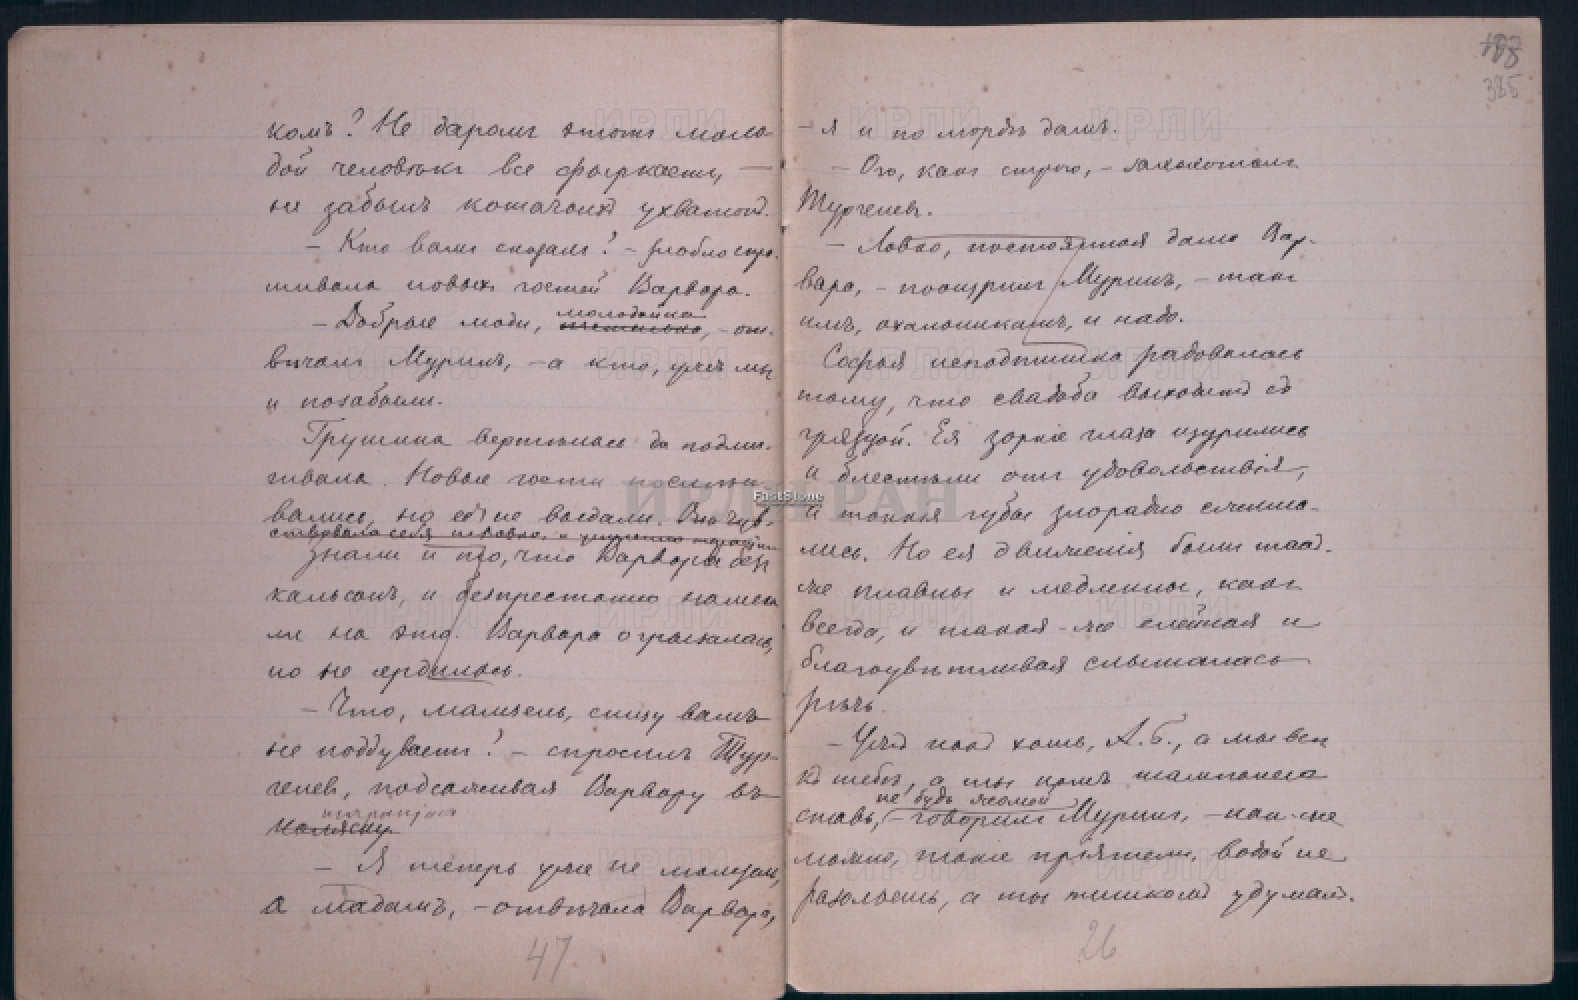 комъ? Не даромъ этотъ моло-
дой человѣкъ все фыркаетъ, —
не забылъ кошачьихъ ухватокъ.
— Кто вамъ сказалъ? — злобно спра-
шивала новыхъ гостей Варвара.
— Добрые люди, молодойка, — от-
вѣчалъ Муринъ, — а кто, ужъ мы
и позабыли.
Грушина вертѣлась да подми-
гивала. Новые гости посмѣи-
вались, но её не выдали. Она чув-
ствовала себя неловко, и
знали и про то, что Варвара безъ
кальсонъ, и безпрестанно намека
ли на это. Варвара огрызалась,
но не сердилась.
— Что, мамзель, снизу вамъ
не поддуваетъ? — спросилъ Тур-
геневъ, подсаживая Варвару въ
коляску
— Я теперь уже не мамзель,
а мадамъ, — отвѣчала Варвара,
47
— я и по мордѣ дамъ.
— Ого, какъ строго, — захохоталъ
Тургеневъ.
— Ловко, постоянная дама Вар-
вара, — поощрилъ Муринъ, — такъ
имъ, охальникамъ, и надо.
Софья исподтишка радовалась
тому, что свадьба выходитъ съ
грязцой. Ея зоркіе глаза щурились
и блестѣли отъ удовольствія,
а тонкія губы злорадно сжима-
лись. Но ея движенія были так-
же плавны и медленны, какъ
всегда, и такая-же елейная и
благоувѣтливая слышалась
рѣчь.
— Ужъ какъ хошь, А. Б., а мы всѣ
къ тебѣ, а ты намъ шампанеи
ставь, не будь жомой — говорилъ Муринъ, — какъ-же
можно, такіе пріятели, водой не
разольешь, а ты тишкомъ удумалъ.
26
385
ИРЛИ РАН
FastStone